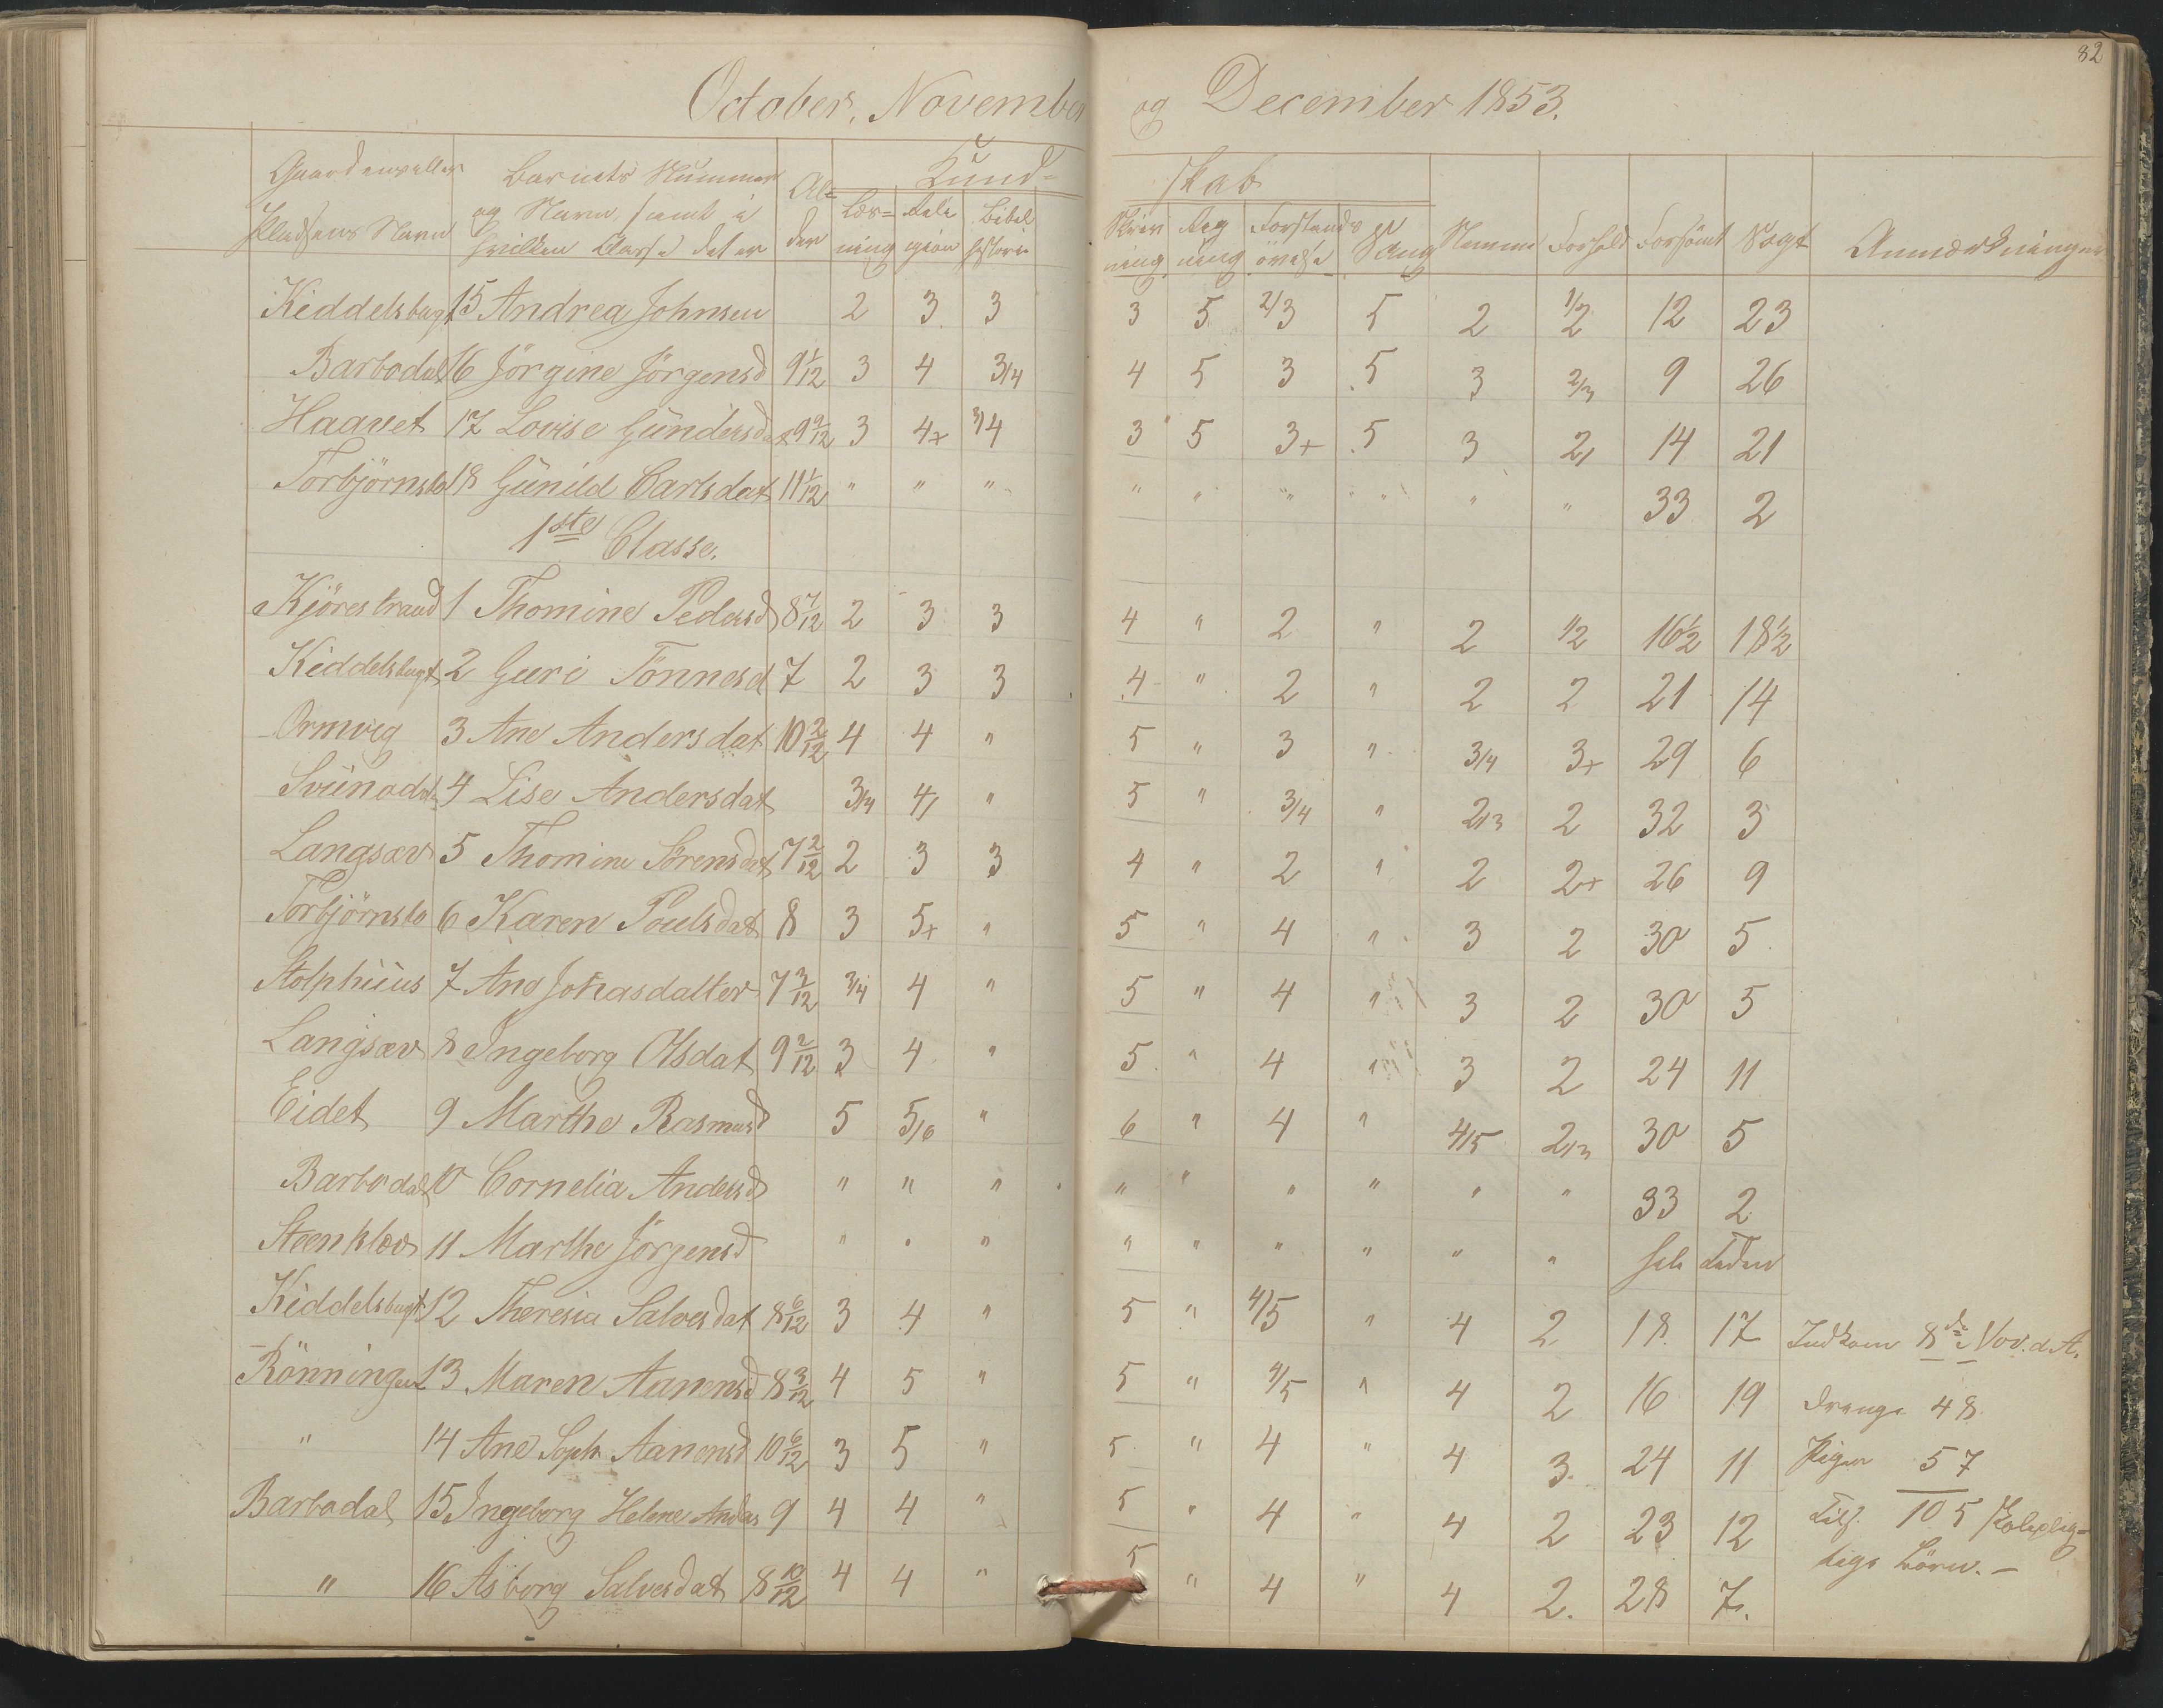 82
October, November og December 1853.
Gaardens eller Pladsens Navn | Barnets Nummer og Navn, samt i hvilken Classe det er | Alder | Kundskab | Nemme | Forhold | Forsömt | Sögt | Anmærkninger
Læsning | Religion | Bibelhistorie | Skrivning | Regning | Forstandsövelse | Sang
Kiddelsbugt 15 Andrea Johnsen 2 3 3 3 5 2/3 5 2 1/2 12 23
Barbodal 16 Jörgine Jörgensd 9 1/12 3 4 3/4 4 5 3 5 3 2/3 9 26
Haavet 17 Lovise Gundersdat 9 9/12 3 4+ 3/4 3 5 3+ 5 3 2/ 14 21
Torbjörnsbo 18 Gunild Carlsdat 11 1/12 " " " " " " " " " 33 2
1ste Classe.
Kjörestrand 1 Thomine Pedersd 8 7/12 2 3 3 4 " 2 " 2 1/2 16 1/2 18 1/2
Kiddelsbugt 2 Guri Tönnesd 7 2 3 3 4 " 2 " 2 2 21 14
Ormvig 3 Ane Andersdat 10 2/12 4 4 " 5 " 3 " 3/4 3+ 29 6
Sviinodd 4 Lise Andersdat 3/4 4/ " 5 " 3/4 " 2/3 2 32 3
Langsæv 5 Thomine Sörensdat 7 2/12 2 3 3 4 " 2 " 2 2+ 26 9
Torbjörnsbo 6 Karen Poulsdat 8 3 5+ " 5 " 4 " 3 2 30 5
Stolphuus 7 Ane Johasdatter 7 3/12 3/4 4 " 5 " 4 " 3 2 30 5
Langsæv 8 Ingeborg Olsdat 9 2/12 3 4 " 5 " 4 " 3 2 24 11
Eidet 9 Marthe Rasmusd 5 5/6 " 6 " 4 " 4/5 2/3 30 5
Barbodal 10 Cornelia Andersd " " " " " " " " " 33 2
Steenklöv 11 Marthe Jörgensd " " " " " " " " " hele Tiden
Kiddelsbugt 12 Theresia Salvesdat 8 6/12 3 4 " 5 " 4/5 " 4 2 18 17 Indkom 8de Nov. d. A.
Rönningen 13 Maren Aanensd 8 3/12 4 5 " 5 " 4/5 " 4 2 16 19 Drenge 48
" 14 Ane Soph. Aanensd 10 6/12 3 5 " 5 " 4 " 4 3. 24 11 Piger 57
Barbodal 15 Ingeborg Helene Anders 9 4 4 " 5 " 4 " 4 2 23 12 Tils. 105 skolepleg-
" 16 Asborg Salvesdat 8 10/12 4 4 " 5 " 4 " 4 2. 28 7. tige Börn. –